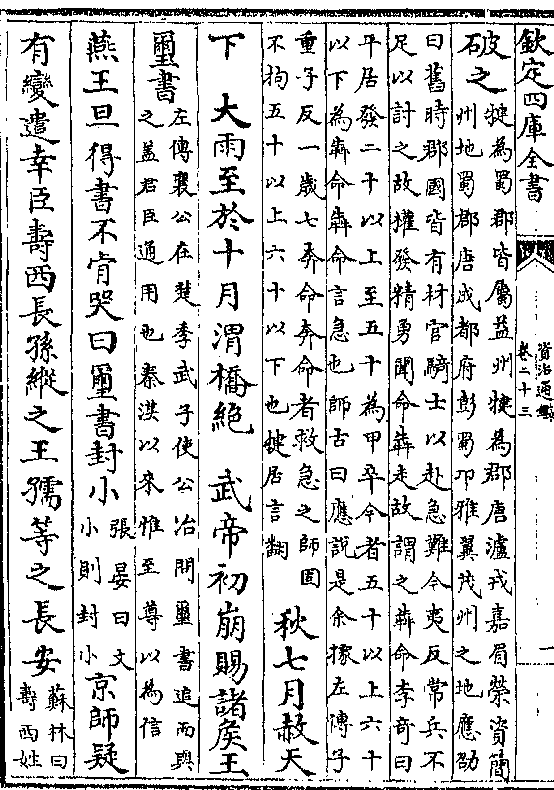 欽定四庫全書
資治通鑑
卷二十三
一
破之犍為蜀郡皆屬益州犍為郡唐瀘戎嘉眉榮資簡
州地蜀郡唐成都府彭蜀卭雅翼茂州之地應劭
曰舊時郡國皆有材官騎士以赴急難今夷反常兵不
足以討之故權發精勇聞命犇走故謂之犇命李奇曰
平居發二十以上至五十為甲卒今者五十以上六十
以下為犇命犇命言急也師古曰應說是余據左傳子
重子反一歲七奔命奔命者救急之師固
不拘五十以上六十以下也犍居言翻
秋七月赦天
下 大雨至於十月渭橋絶 武帝初崩賜諸侯王
璽書左傳襄公在楚季武子使公冶問璽書追而與
之蓋君臣通用也秦漢以來惟至尊以為信
燕王旦得書不肯哭曰璽書封小張晏曰文
小則封小
京師疑
有變遣幸臣壽西長孫縱之王孺等之長安蘇林曰
壽西姓